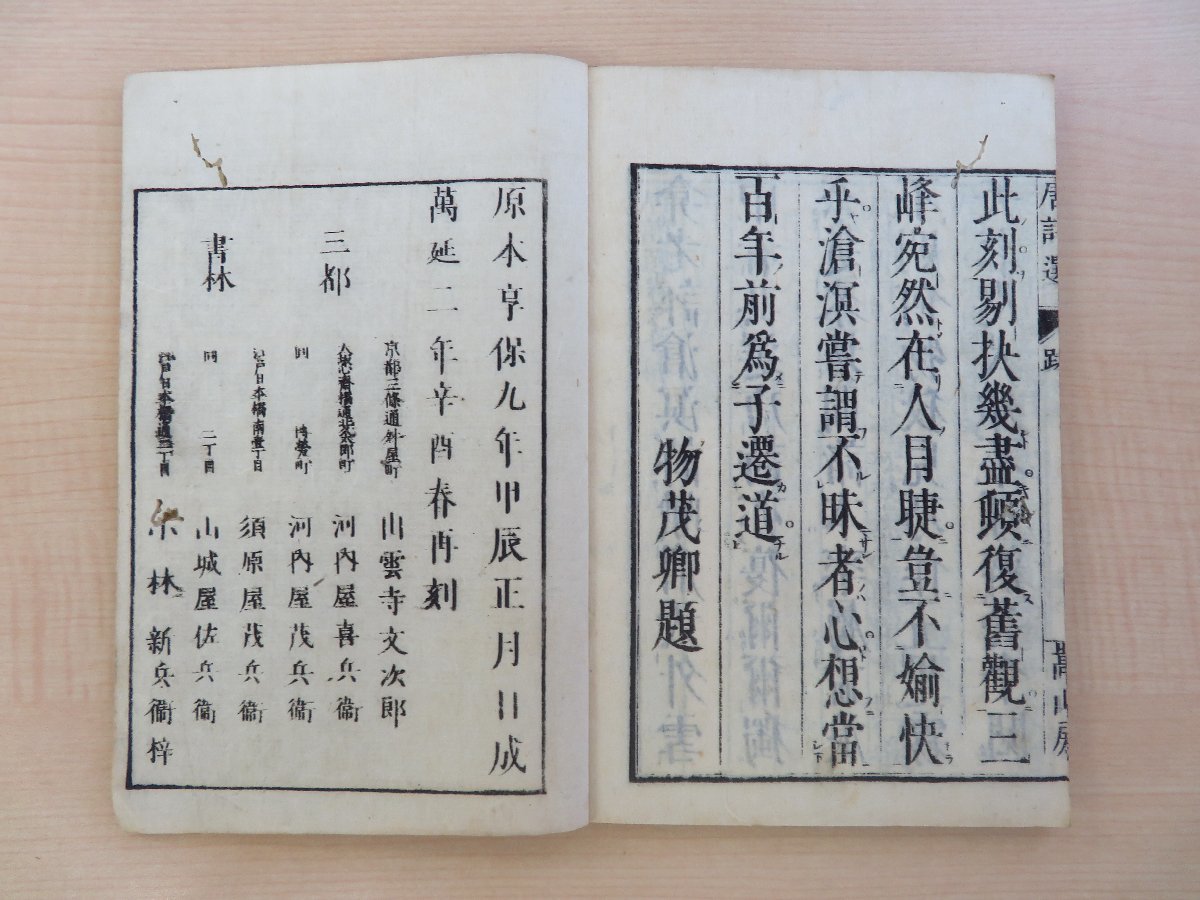 唐詩選 跋 嵩山房
此刻剔抉幾盡頓復舊觀三
峰宛然在人目睫豈不媮快
乎滄溟嘗謂不昧者心想當
百年前爲子遷道
物茂卿題
原本享保九年甲辰正月日成
萬延二年辛酉春再刻
三都
書林
京都三條通舛屋町 出雲寺文次郎
河内屋喜兵衞
同 博勞町 河内屋茂兵衞
江戸日本橋南壹丁目 須原屋茂兵衞
同 二丁目 山城屋佐兵衞
林 新兵衞梓